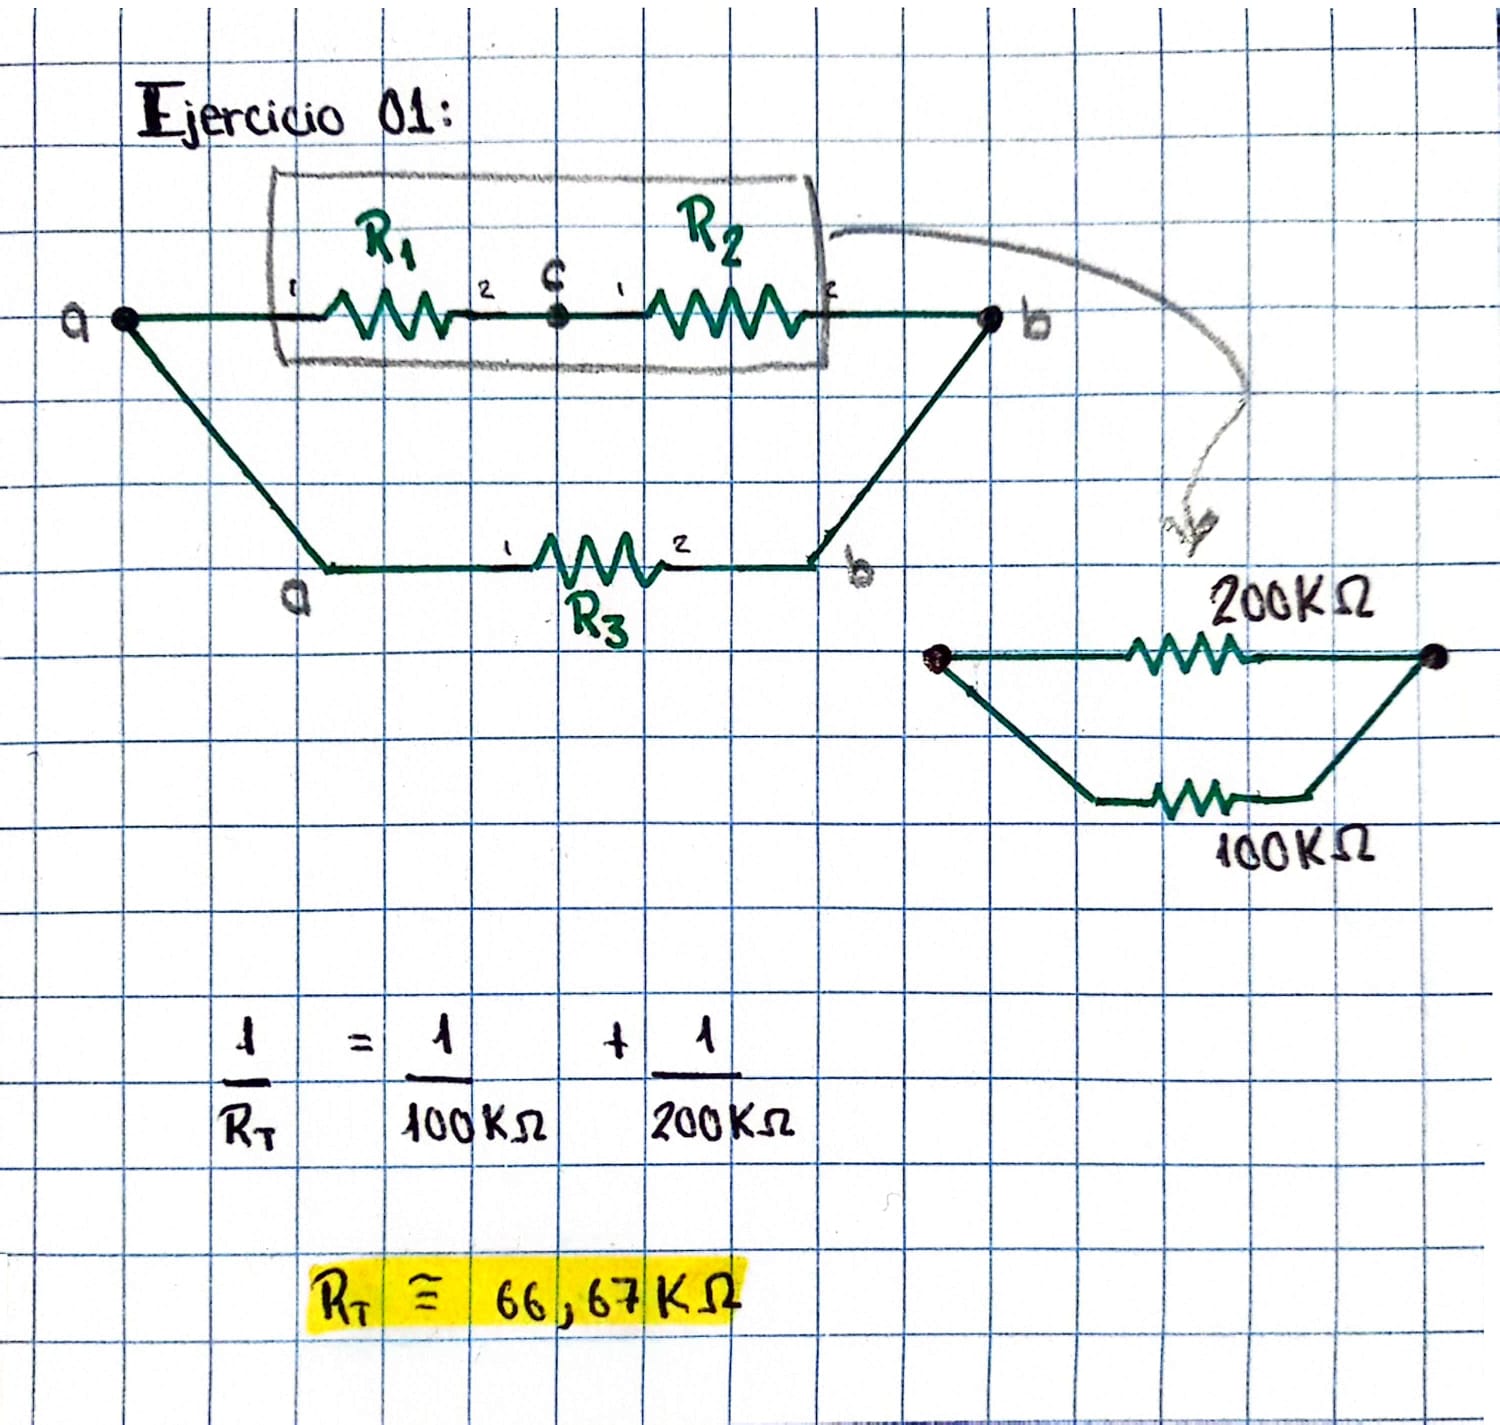 Ejercicio 01:
R1 R2
1 2 c 1 2
a b
1 2
a b
R3
200KΩ
100KΩ
1 = 1 + 1
RT 100KΩ 200KΩ
RT ≅ 66,67KΩ